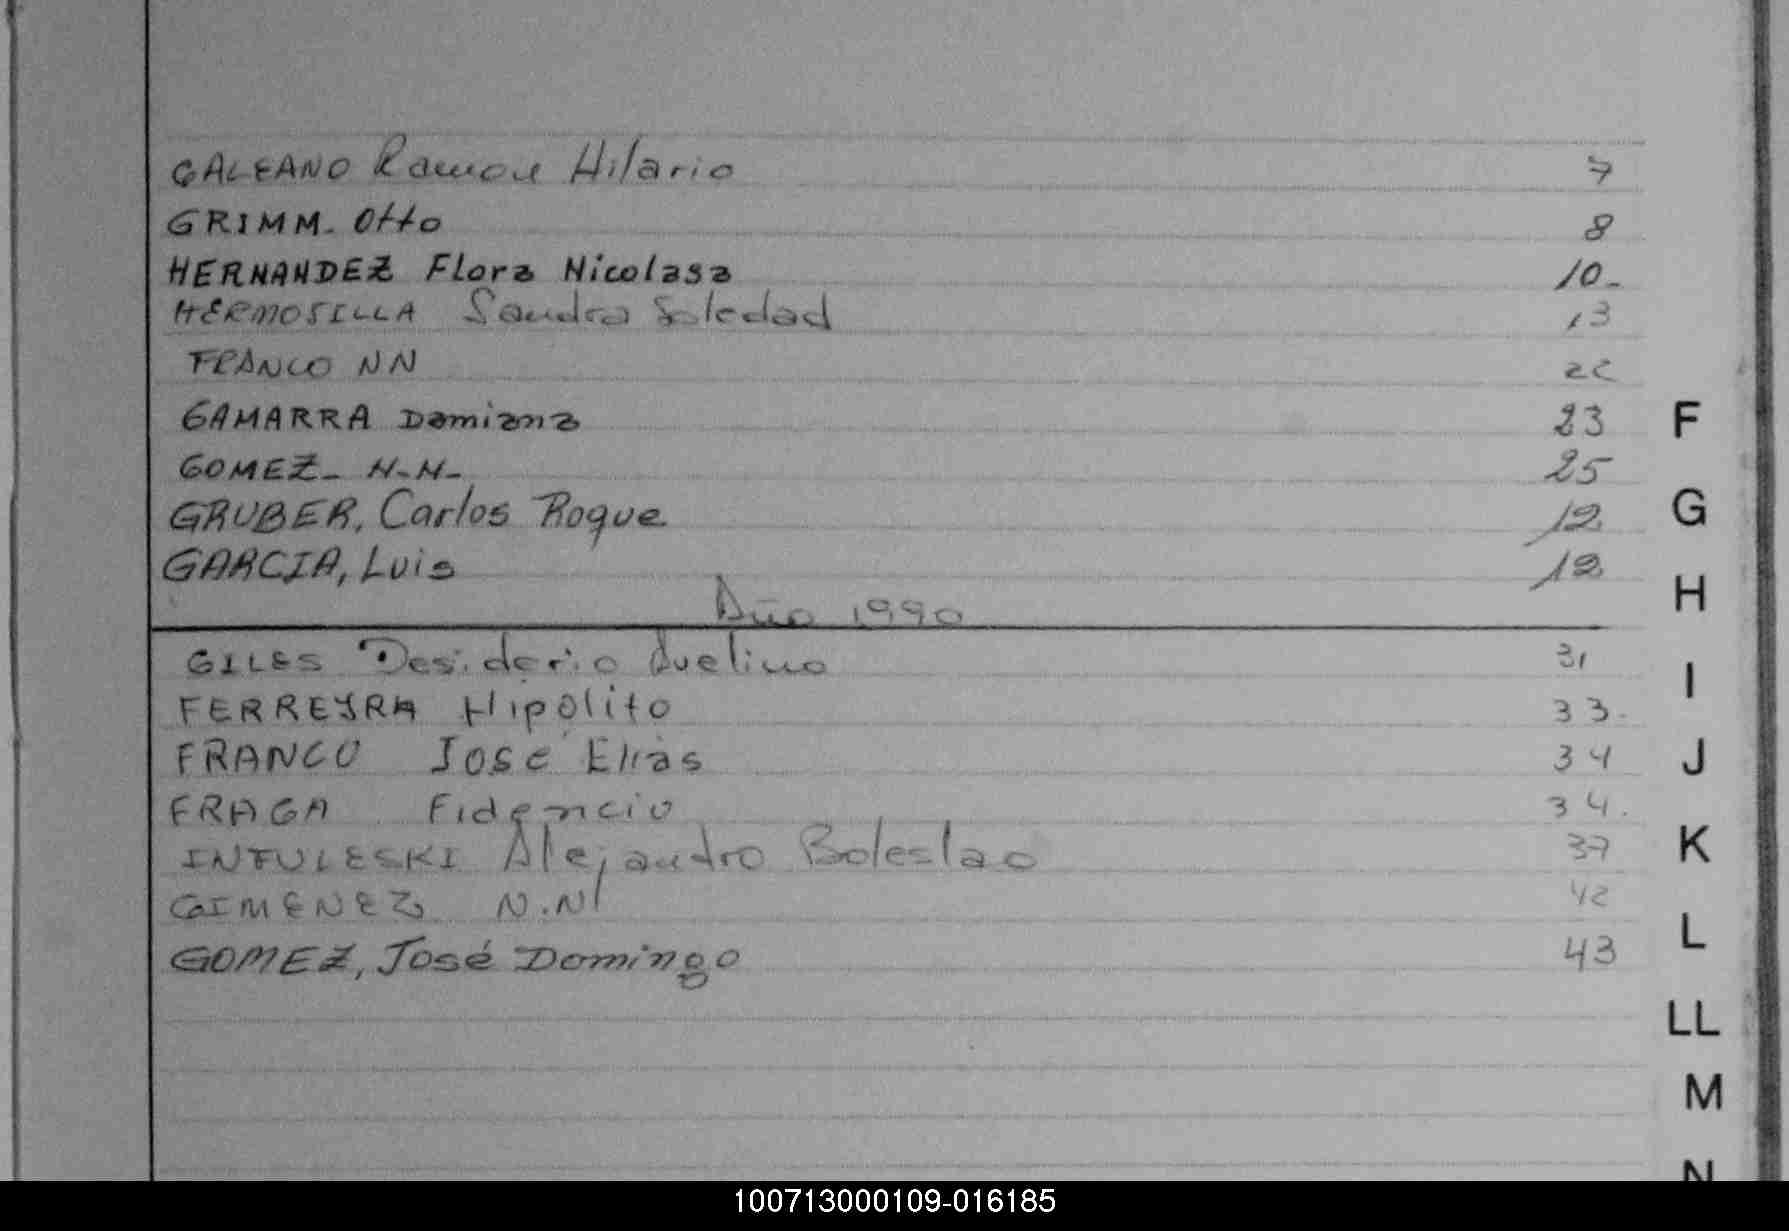 GALEANO Ramon Hilario 7
GRIMM. Otto 8
HERNANDEZ Flora Nicolasa 10.
HERMOSILLA Sandra Soledad 13
FRANCO NN 22
GAMARRA Damiana 23
GOMEZ - N-N- 25
GRUBER, Carlos Roque 12
GARCIA, Luis 12
Año 1990
GILES Desiderio Avelino 31
FERREYRA Hipólito 33.
FRANCO José Elías 34
FRAGA Fidencio 34.
INFULESKI Alejandro Boleslao 37
GIMENEZ N.N 42
GOMEZ, José Domingo 43
F
G
H
I
J
K
L
LL
M
N
100713000109-016185